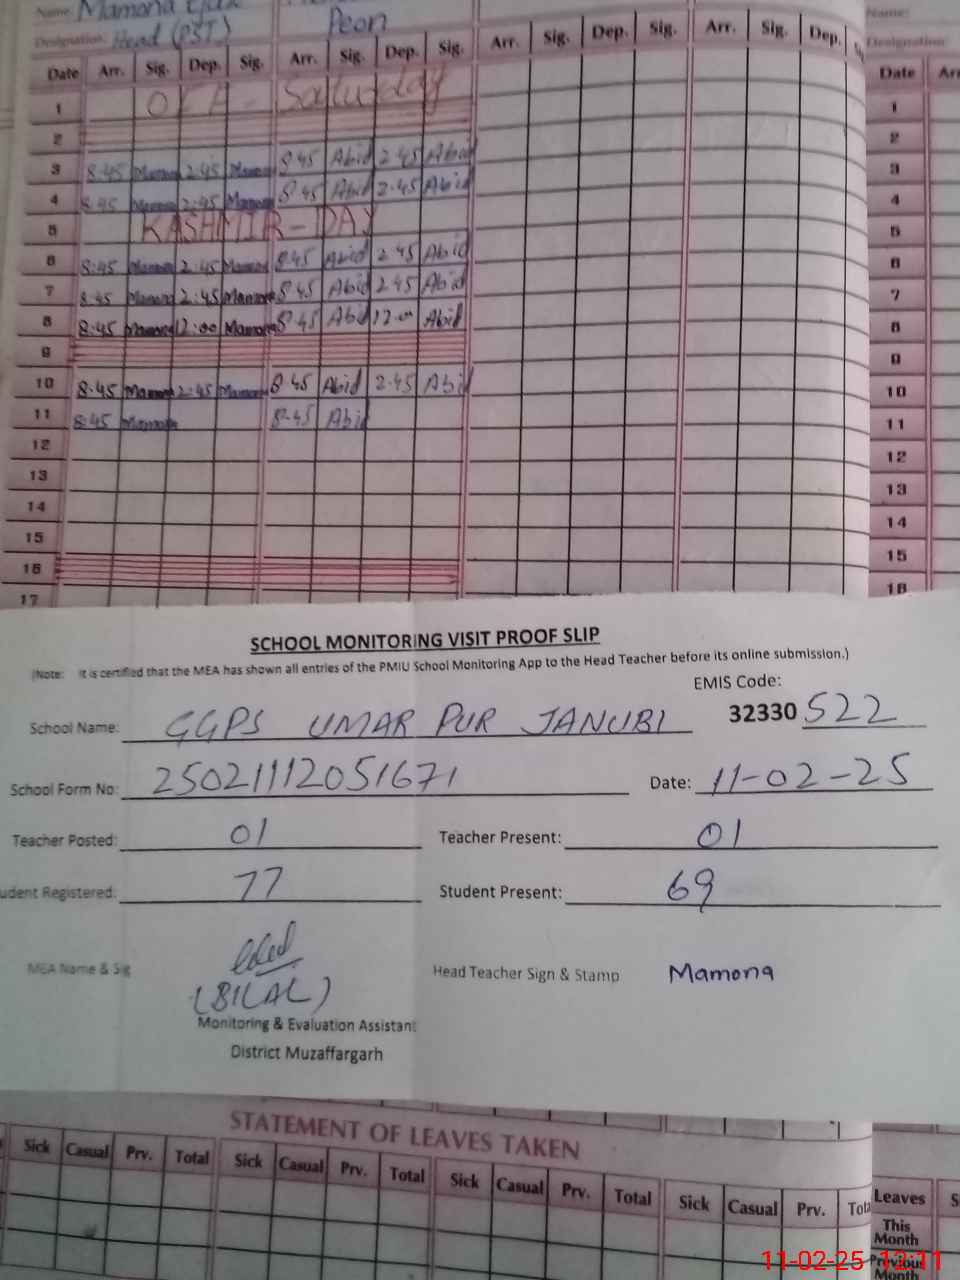 Name: Mamona
Designation: Head (PST) Peon
Name:
Designation:
Date Arr. Sig. Dep. Sig. Arr. Sig. Dep. Sig. Arr. Sig. Dep. Sig. Arr. Sig. Dep. Date
1 Saturday 1
2 2
3 8:45 Mamona 2:45 Mamona 8:45 Abid 2:45 Abid 3
4 8:45 Mamona 2:45 Mamona 8:45 Abid 2:45 Abid 4
5 KASHMIR-DAY 5
6 8:45 Mamona 2:45 Mamona 8:45 Abid 2:45 Abid 6
7 8:45 Mamona 2:45 Mamona 8:45 Abid 2:45 Abid 7
8 8:45 Mamona 12:00 Mamona 8:45 Abid 12:00 Abid 8
9 9
10 8:45 Mamona 2:45 Mamona 8:45 Abid 2:45 Abid 10
11 8:45 Mamona 8:45 Abid 11
12 12
13 13
14 14
15 15
16 16
17
SCHOOL MONITORING VISIT PROOF SLIP
(Note: It is certified that the MEA has shown all entries of the PMIU School Monitoring App to the Head Teacher before its online submission.)
EMIS Code:
School Name: GGPS UMAR PUR JANUBI 32330 522
School Form No: 25021112051671 Date: 11-02-25
Teacher Posted: 01 Teacher Present: 01
udent Registered: 77 Student Present: 69
MEA Name & Sig Head Teacher Sign & Stamp Mamona
(BILAL)
Monitoring & Evaluation Assistant
District Muzaffargarh
STATEMENT OF LEAVES TAKEN
Sick Casual Prv. Total Sick Casual Prv. Total Sick Casual Prv. Total Sick Casual Prv. Tota Leaves S
This Month
Previous Month
11-02-25 12:11